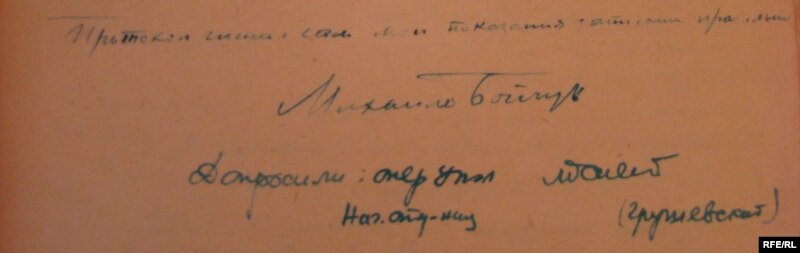 Протокол читал сам мои показания записани правильно
Михайло Бойчук
Допросили: опер упол
Нач.
(Грушевский)
RFE/RL